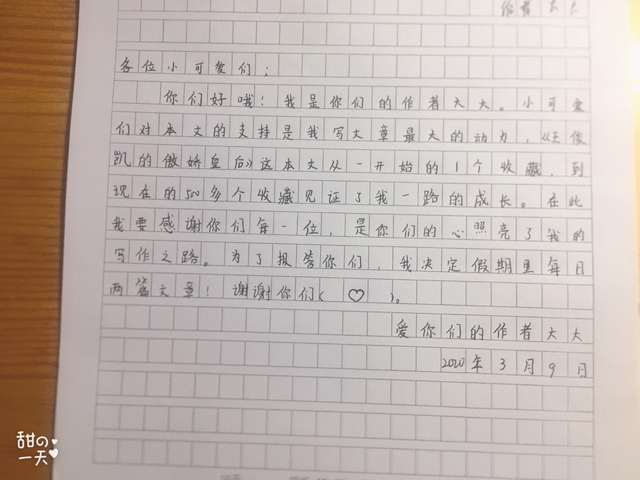 作者大大
各位小可爱们：
你们好哦！我是你们的作者大大。小可爱
们对本文的支持是我写文章最大的动力，《王俊
凯的傲娇皇后》这本文从一开始的1个收藏，到
现在的500多个收藏见证了我一路的成长。在此
我要感谢你们每一位，是你们的心照亮了我的
写作之路。为了报答你们，我决定假期里每日
两篇文章！谢谢你们(♡)。
爱你们的作者大大
2020年3月9日
甜の
一天